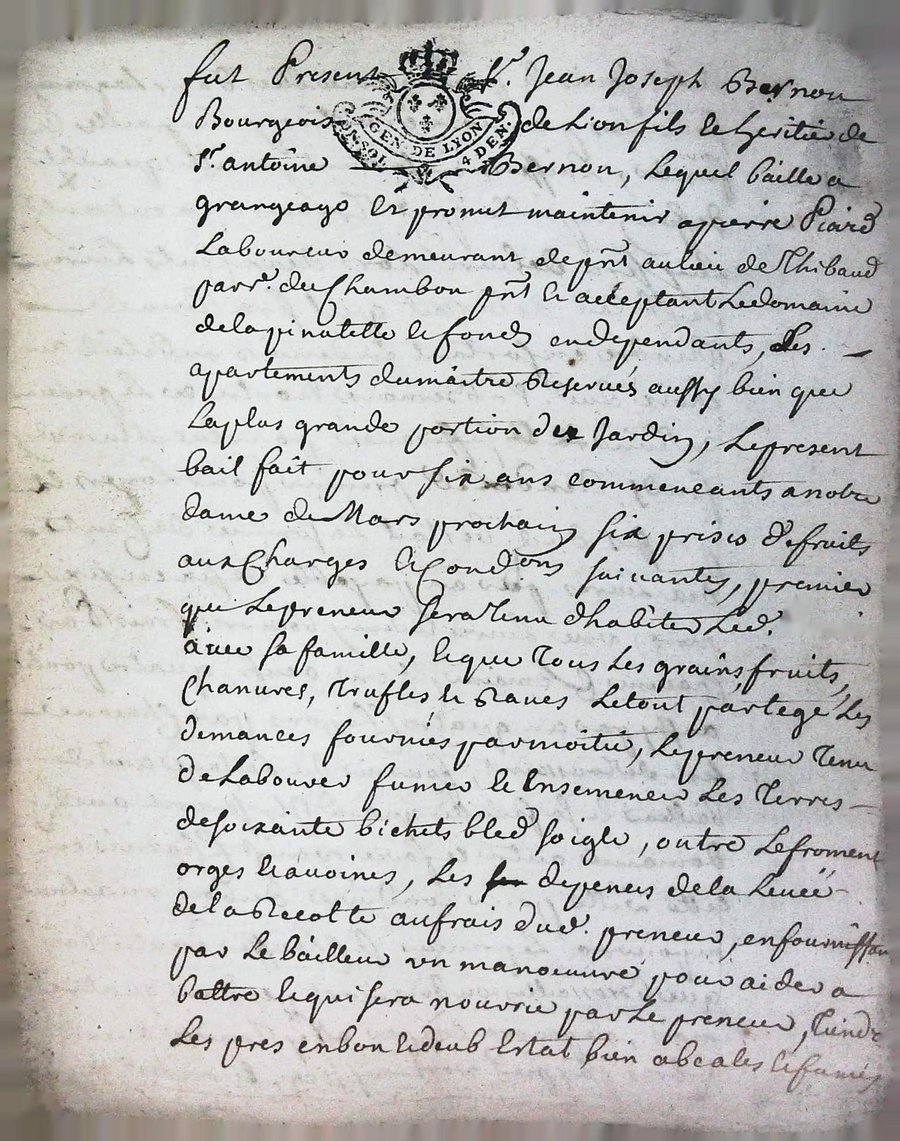 fut Present Sr. Jean Joseph Bernon
GEN. DE LYON
4 DEN.
Bourgeois de Lion fils & heritier de
Sr. antoine Bernon, Lequel bâille a
grangeage et promet maintenir a pierre Picard
Laboureur demeurant de pnt au lieu de Thibaud
parr. du Chambon pnt & acceptant Le domaine
de la pinatelle & fonds en dependants, Les
apartements du maitre Reservés aussy bien que
La plus grande portion du Jardin, Le present
bail fait pour six ans commencants a notre
dame de Mars prochain six prises de fruits
aux Charges & Condons suivantes, premier
que Le preneur sera tenu d'habiter Led.
avec sa famille, & que Tous Les grains fruits,
Chanvres, Trufles & Raves Le tout pártegé Les
semances fournies par moitié, Le preneur Tenu
de Labourer fumer & Ensemencer Les Terres
de soixante bichets bled soigle, outre Le froment
orges & avoines, Les depences de la Levée
de la Recolte au frais dud. preneur, en fournissan
par Le bailleur un manoeuvre pour aider a
battre & qui sera nourrie par Le preneur, Tiendr
Les pres en bon & deub Estat bien & fumés